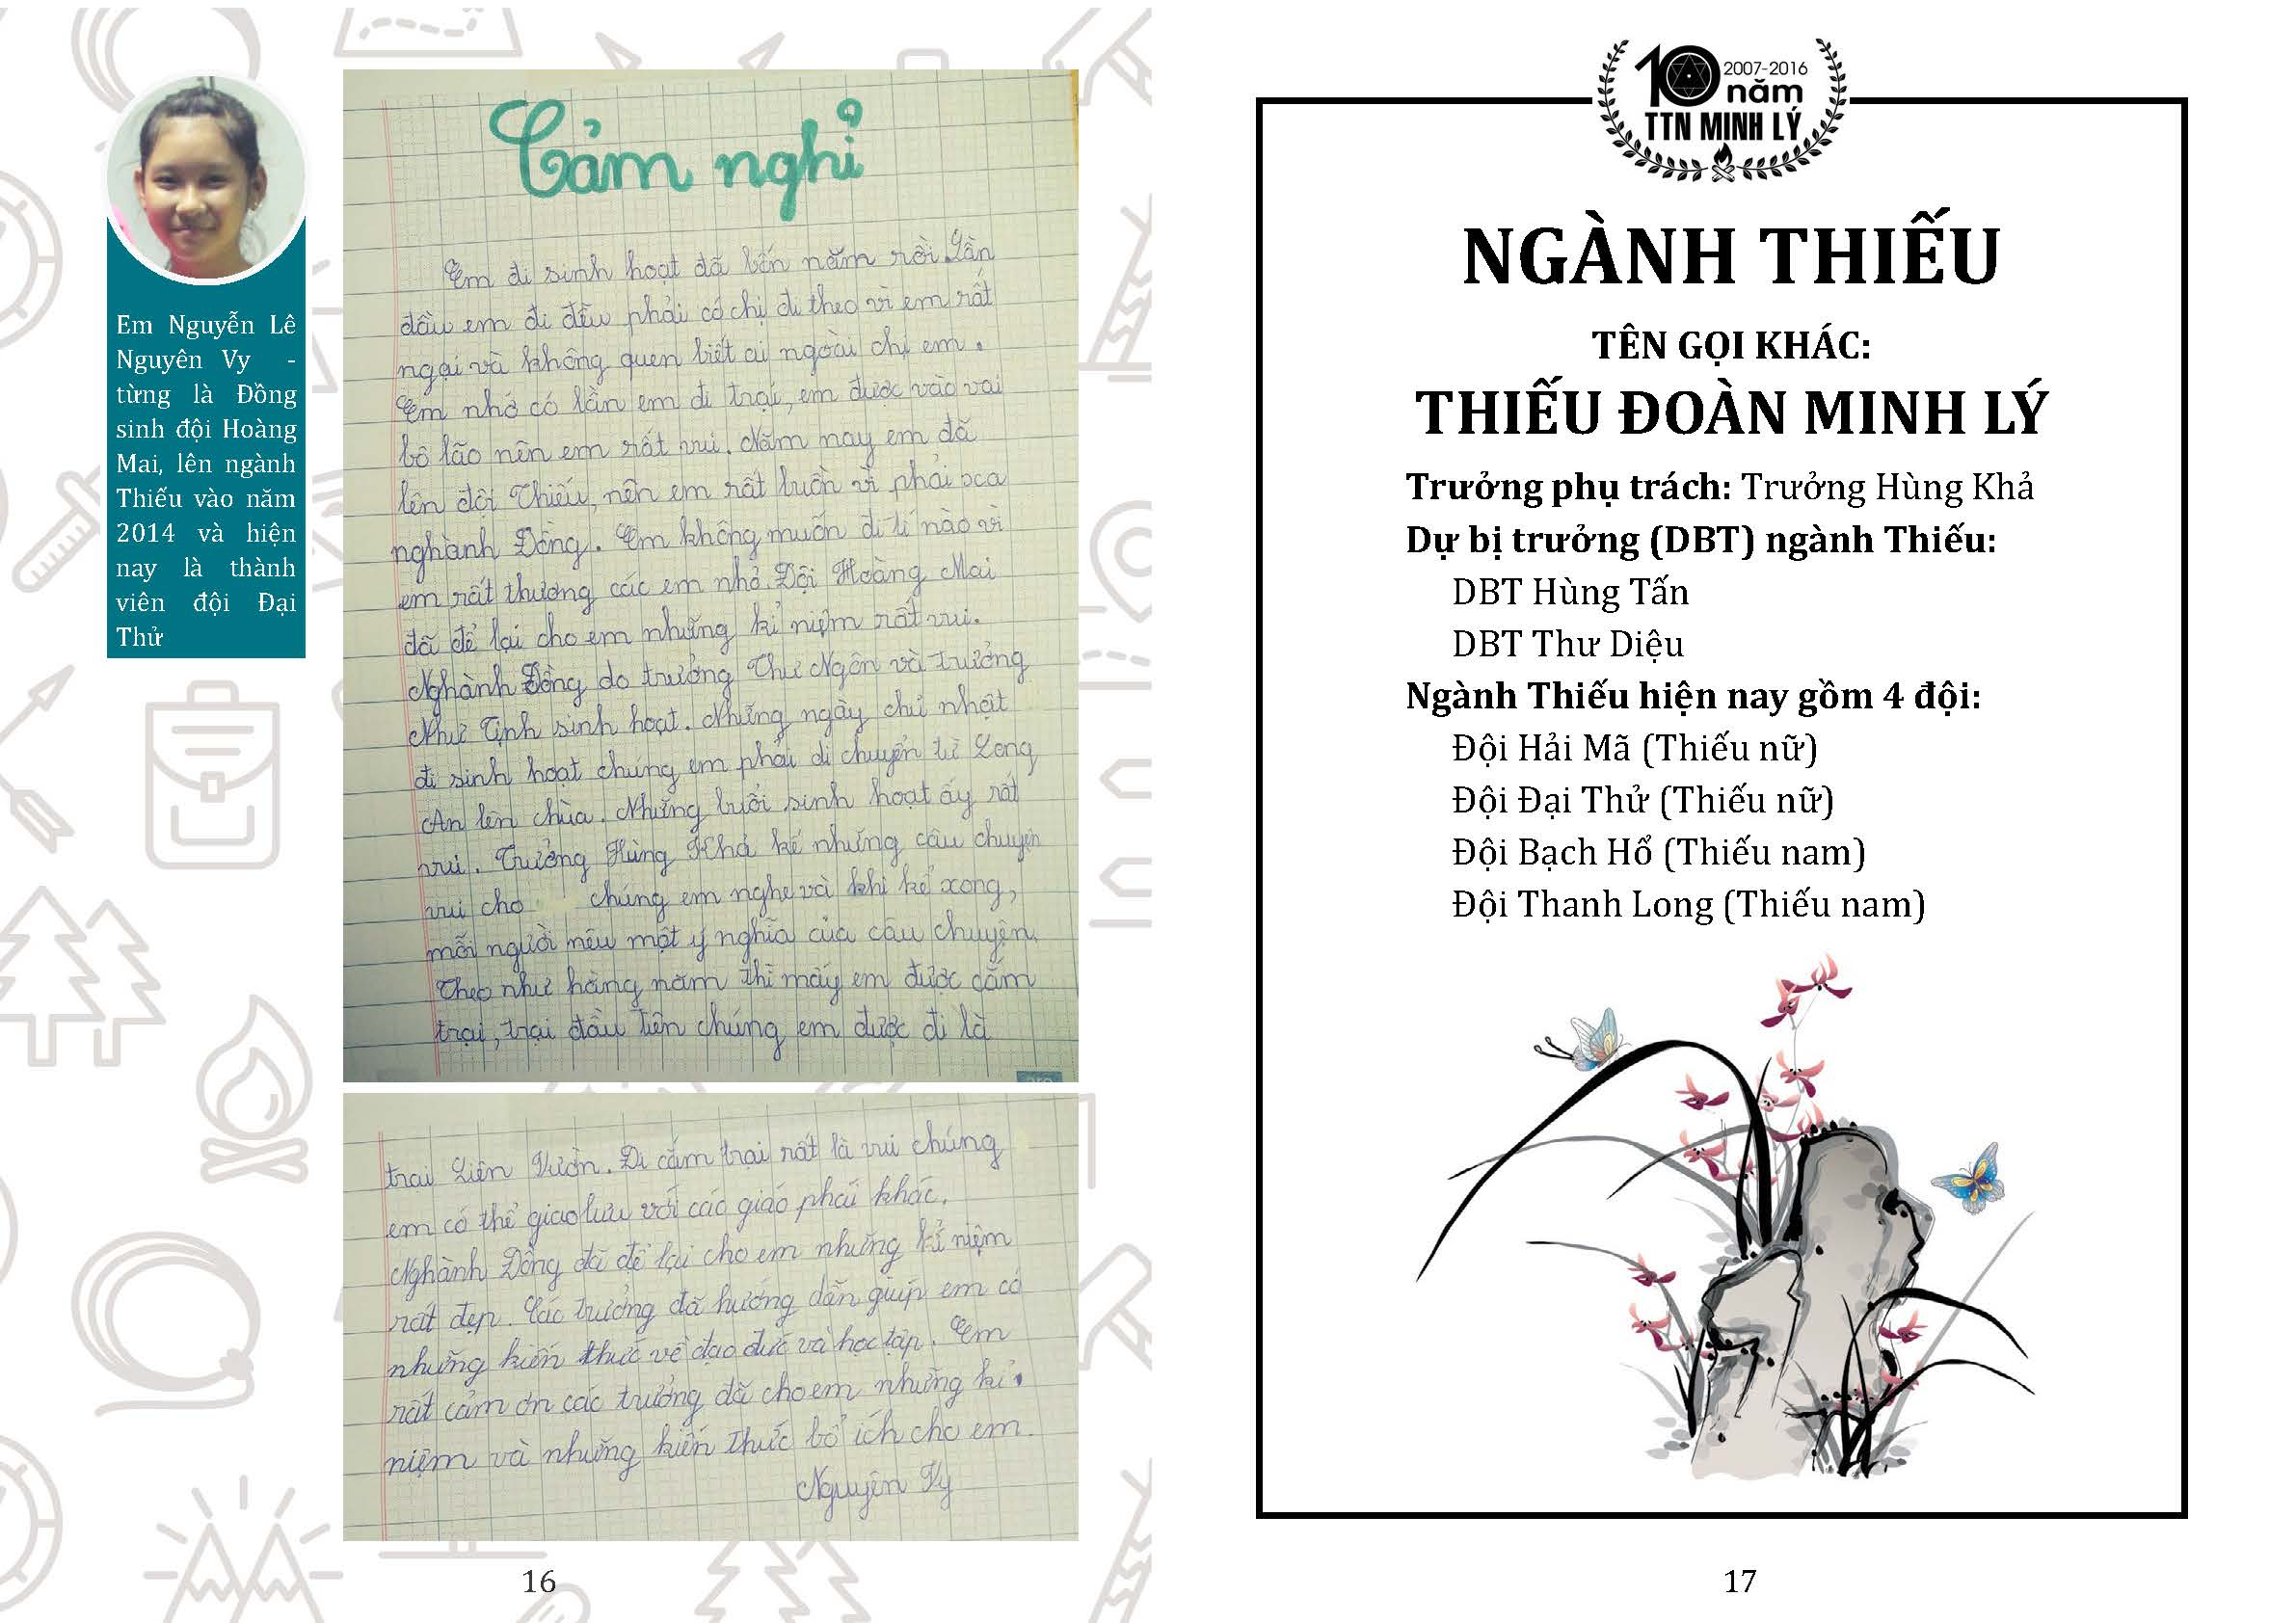 Em Nguyễn Lê
Nguyên Vy -
từng là Đồng
sinh đội Hoàng
Mai, lên ngành
Thiếu vào năm
2014 và hiện
nay là thành
viên đội Đại
Thử
Cảm nghỉ
Em đi sinh hoạt đã bốn năm rồi. Lần
đầu em đi đều phải có chị đi theo vì em rất
ngại và không quen biết ai ngoài chị em.
Em nhớ có lần em đi trại, em được vào vai
bô lão nên em rất vui. Năm nay em đã
lên đội Thiếu, nên em rất buồn vì phải xa
nghành Đồng. Em không muốn đi tí nào vì
em rất thương các em nhỏ. Đội Hoàng Mai
đã để lại cho em những kỉ niệm rất vui.
Nghành Đồng do trưởng Thư Ngôn và trưởng
Như Tịnh sinh hoạt. Những ngày chủ nhật
đi sinh hoạt chúng em phải di chuyển từ Long
An lên chùa. Những buổi sinh hoạt ấy rất
vui. Trưởng Hùng Khả kể những câu chuyện
vui cho chúng em nghe và khi kể xong,
mỗi người nêu một ý nghĩa của câu chuyện.
Theo như hàng năm thì mấy em được cắm
trại, trại đầu tiên chúng em được đi là
trại Liên Vườn. Đi cắm trại rất là vui chúng
em có thể giao lưu với các giáo phái khác.
Nghành Đồng đã để lại cho em những kỉ niệm
rất đẹp. Các trưởng đã hướng dẫn giúp em có
những kiến thức về đạo đức và học tập. Em
rất cảm ơn các trưởng đã cho em những kỉ
niệm và những kiến thức bổ ích cho em.
Nguyên Vy
16
10 2007-2016
năm
TTN MINH LÝ
NGÀNH THIẾU
TÊN GỌI KHÁC:
THIẾU ĐOÀN MINH LÝ
Trưởng phụ trách: Trưởng Hùng Khả
Dự bị trưởng (DBT) ngành Thiếu:
DBT Hùng Tấn
DBT Thư Diệu
Ngành Thiếu hiện nay gồm 4 đội:
Đội Hải Mã (Thiếu nữ)
Đội Đại Thử (Thiếu nữ)
Đội Bạch Hổ (Thiếu nam)
Đội Thanh Long (Thiếu nam)
17